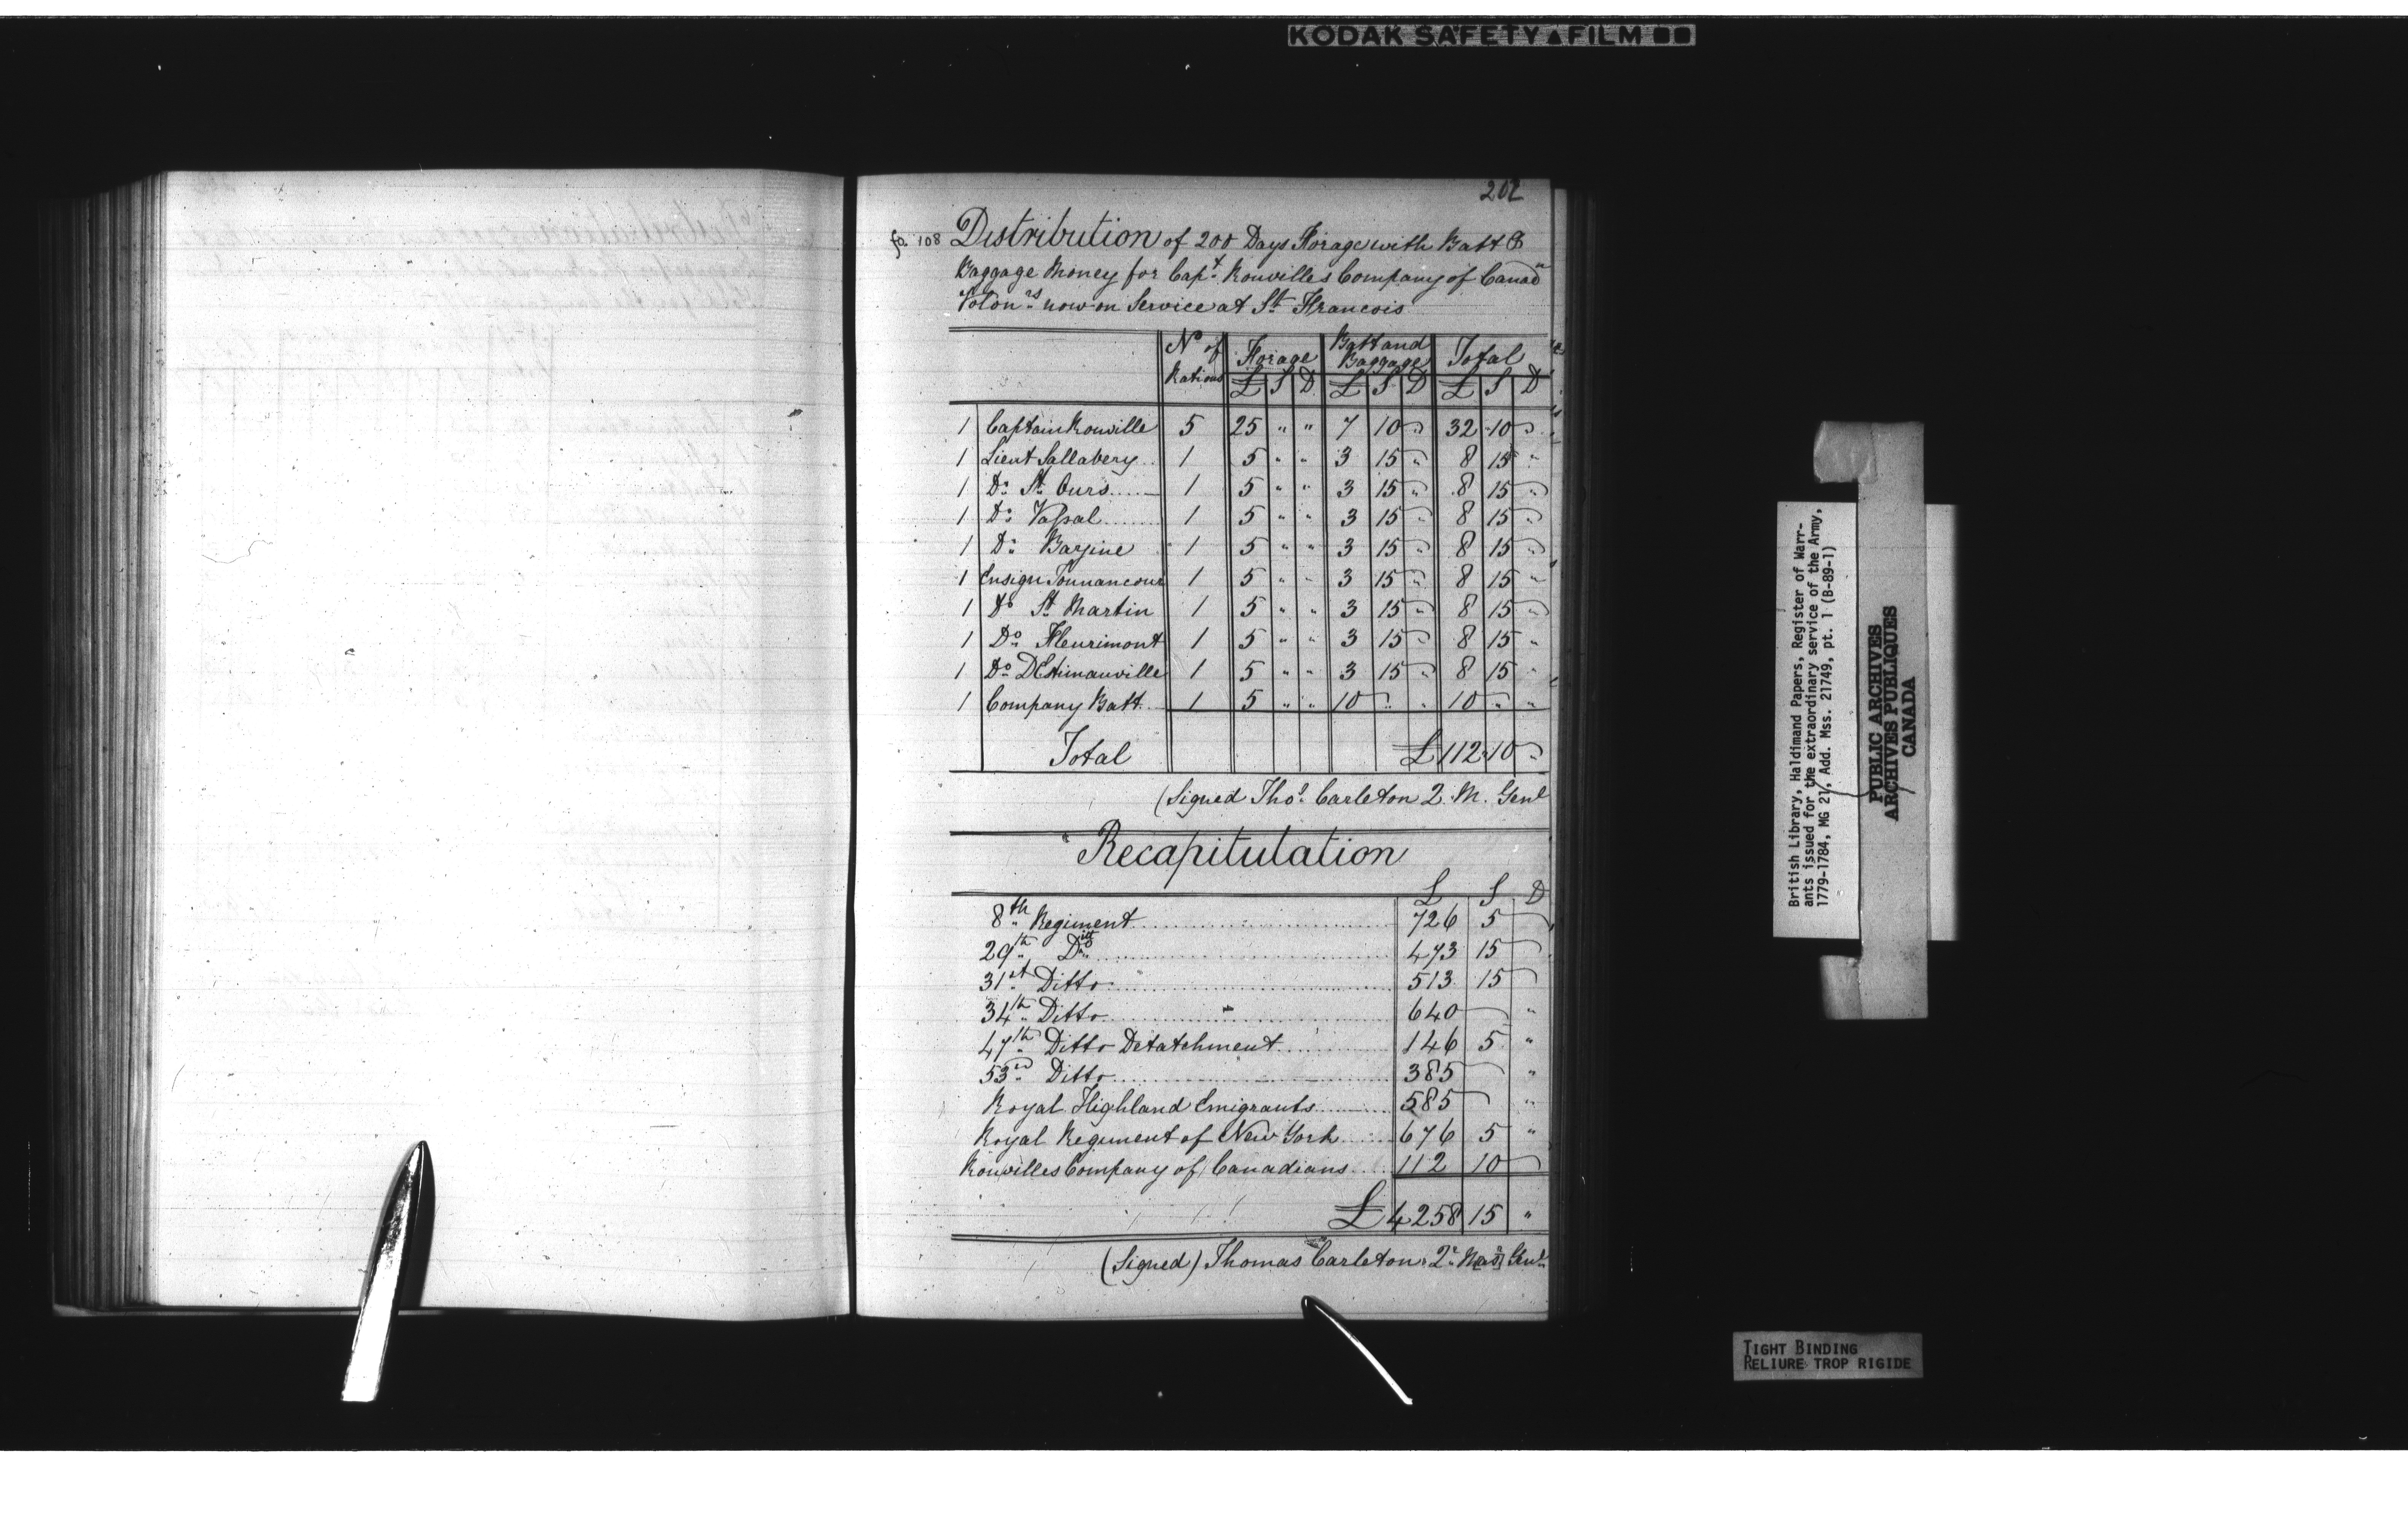 KODAK SAFETY FILM
202
fo. 108 Distribution of 200 Days Forage with Batt &
Baggage Money for Capt. Rouvilles Company of Canadn
Volonrs. now on Service at St. Francois
No of Rations | Forage £ S D | Batt and Baggage £ S D | Total £ S D
1 Captain Rouville 5 25 " " 7 10 " 32 10 "
1 Lieut Sallabery 1 5 " " 3 15 " 8 15 "
1 Do. St. Ours 1 5 " " 3 15 " 8 15 "
1 Do. Vassal 1 5 " " 3 15 " 8 15 "
1 Do. Bazine 1 5 " " 3 15 " 8 15 "
1 Ensign Tonnancour 1 5 " " 3 15 " 8 15 "
1 Do. St. Martin 1 5 " " 3 15 " 8 15 "
1 Do. Fleurimont 1 5 " " 3 15 " 8 15 "
1 Do. DEstimauville 1 5 " " 3 15 " 8 15 "
1 Company Batt 1 5 " " 10 " " 10 " "
Total £112 10 "
(Signed Thos. Carleton 2. M. Genl
Recapitulation
£ S D
8th. Regiment 726 5
29th. Ditto 473 15
31st. Ditto 513 15
34th. Ditto 640 "
47th. Ditto Detatchment 146 5 "
53rd. Ditto 385 "
Royal Highland Emigrants 585 "
Royal Regiment of New York 676 5 "
Rouvilles Company of Canadians 112 10
£ 4258 15 "
(Signed) Thomas Carleton 2r. Masr Genl.
British Library, Haldimand Papers, Register of Warr-
ants issued for the extraordinary service of the Army,
1779-1784, MG 21, Add. Mss. 21749, pt. 1 (B-89-1)
PUBLIC ARCHIVES
ARCHIVES PUBLIQUES
CANADA
TIGHT BINDING
RELIURE TROP RIGIDE